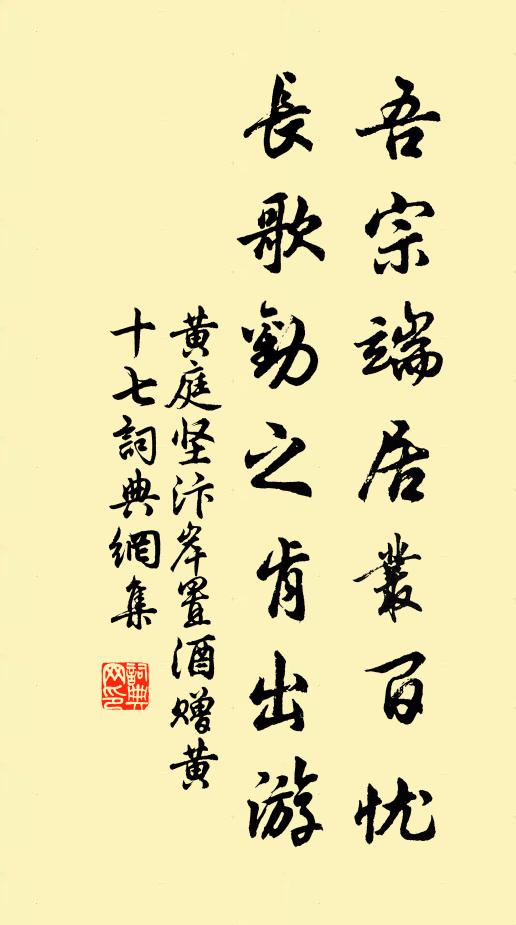 吾宗端居叢百忧
長歌勸之肯出游
黄庭坚汴岸置酒赠黄
十七詞典網集
詞典网印